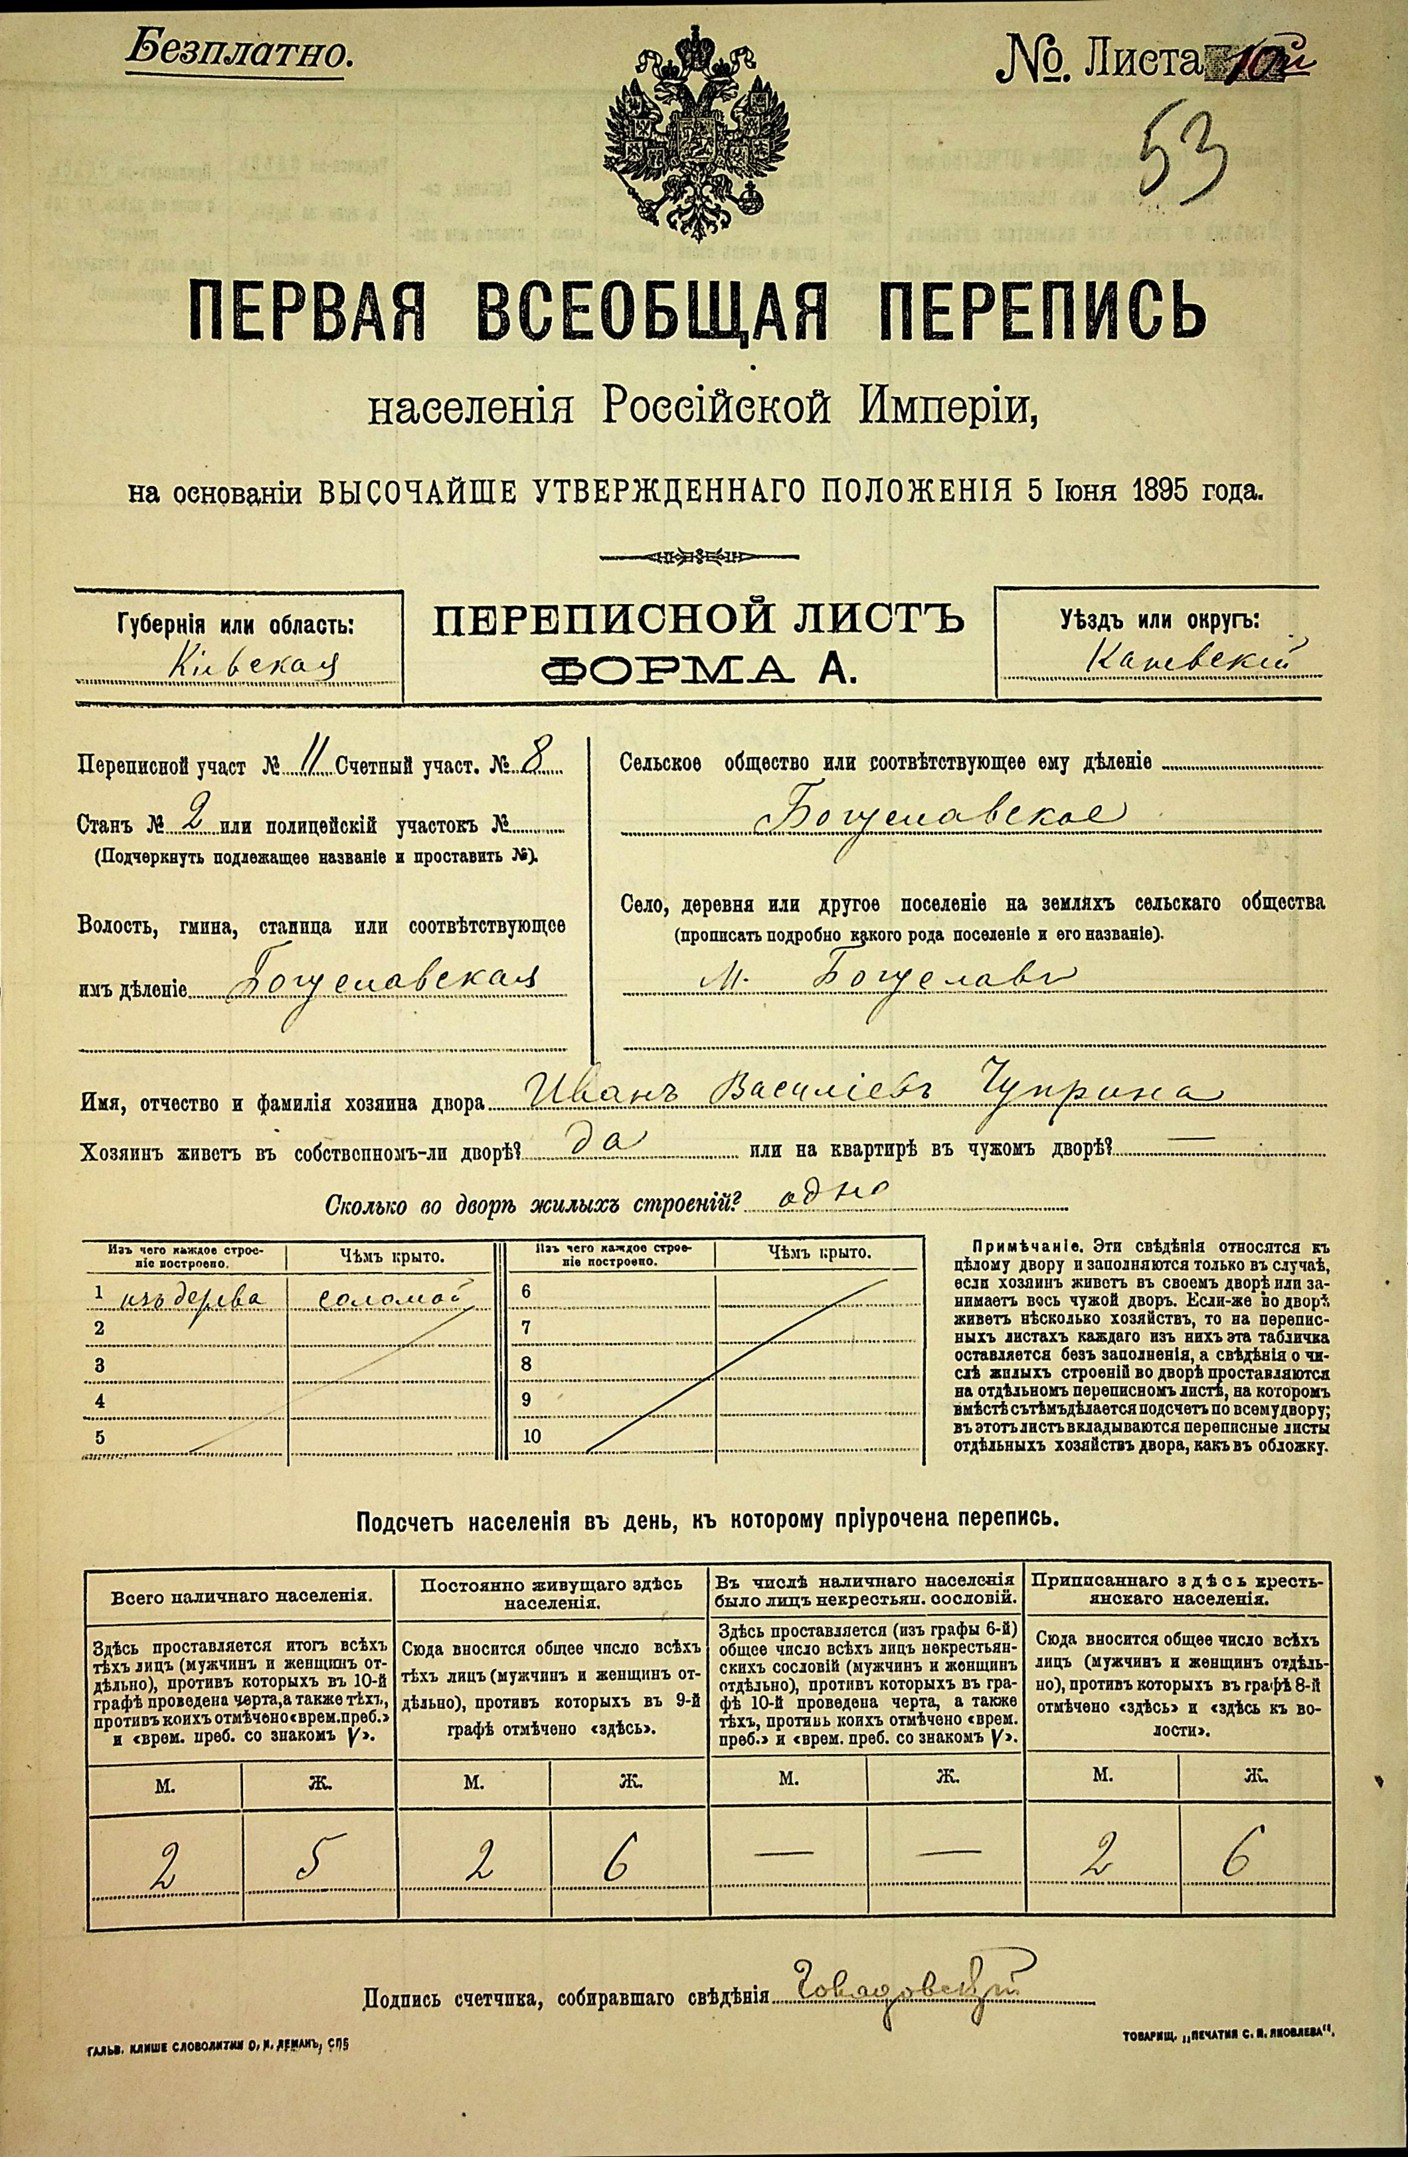 Безплатно.
№. Листа 10й
53
ПЕРВАЯ ВСЕОБЩАЯ ПЕРЕПИСЬ
населенія Россійской Имперіи,
на основаніи ВЫСОЧАЙШЕ УТВЕРЖДЕННАГО ПОЛОЖЕНІЯ 5 Іюня 1895 года.
Губернія или область:
Кіевская
ПЕРЕПИСНОЙ ЛИСТЪ
ФОРМА А.
Уѣздъ или округъ:
Каневскій
Переписной участ № 11 Счетный участ. № 8
Станъ № 2 или полицейскій участокъ №
(Подчеркнуть подлежащее названіе и проставить №).
Волость, гмина, станица или соотвѣтствующее
имъ дѣленіе Богуславская
Сельское общество или соотвѣтствующее ему дѣленіе
Богуславское
Село, деревня или другое поселеніе на земляхъ сельскаго общества
(прописать подробно какого рода поселеніе и его названіе).
М. Богуславъ
Имя, отчество и фамилія хозяина двора Иванъ Василіевъ Чуприна
Хозяинъ живетъ въ собственномъ-ли дворѣ? да или на квартирѣ въ чужомъ дворѣ? —
Сколько во дворѣ жилыхъ строеній? одно
Изъ чего каждое строе-
ніе построено.
Чѣмъ крыто.
1 изъ дерева соломой
2
3
4
5
Изъ чего каждое строе-
ніе построено.
Чѣмъ крыто.
6
7
8
9
10
Примѣчаніе. Эти свѣдѣнія относятся къ
цѣлому двору и заполняются только въ случаѣ,
если хозяинъ живетъ въ своемъ дворѣ или за-
нимаетъ весь чужой дворъ. Если-же во дворѣ
живетъ нѣсколько хозяйствъ, то на перепис-
ныхъ листахъ каждаго изъ нихъ эта табличка
оставляется безъ заполненія, а свѣдѣнія о чи-
слѣ жилыхъ строеній во дворѣ проставляются
на отдѣльномъ переписномъ листѣ, на которомъ
вмѣстѣ сътѣмъ дѣлается подсчетъ по всему двору;
въ этотъ листъ вкладываются переписные листы
отдѣльныхъ хозяйствъ двора, какъ въ обложку.
Подсчетъ населенія въ день, къ которому пріурочена перепись.
Всего наличнаго населенія.
Здѣсь проставляется итогъ всѣхъ
тѣхъ лицъ (мужчинъ и женщинъ от-
дѣльно), противъ которыхъ въ 10-й
графѣ проведена черта, а также тѣхъ,
противъ коихъ отмѣчено «врем. преб.»
и «врем. преб. со знакомъ V».
М. Ж.
2 5
Постоянно живущаго здѣсь
населенія.
Сюда вносится общее число всѣхъ
тѣхъ лицъ (мужчинъ и женщинъ от-
дѣльно), противъ которыхъ въ 9-й
графѣ отмѣчено «здѣсь».
М. Ж.
2 6
Въ числѣ наличнаго населенія
было лицъ некрестьян. сословій.
Здѣсь проставляется (изъ графы 6-й)
общее число всѣхъ лицъ некрестьян-
скихъ сословій (мужчинъ и женщинъ
отдѣльно), противъ которыхъ въ гра-
фѣ 10-й проведена черта, а также
тѣхъ, противъ коихъ отмѣчено «врем.
преб.» и «врем. преб. со знакомъ V».
М. Ж.
— —
Приписаннаго здѣсь кресть-
янскаго населенія.
Сюда вносится общее число всѣхъ
лицъ (мужчинъ и женщинъ отдѣль-
но), противъ которыхъ въ графѣ 8-й
отмѣчено «здѣсь» и «здѣсь къ во-
лости».
М. Ж.
2 6
Подпись счетчика, собиравшаго свѣдѣнія
ГАЛЬВ. КЛИШЕ СЛОВОЛИТНИ О. И. ЛЕМАНЪ, СПБ
ТОВАРИЩ. „ПЕЧАТНЯ С. П. ЯКОВЛЕВА".